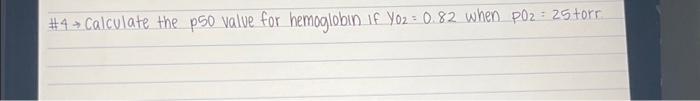 #4 → Calculate the p50 value for hemoglobin if YO2 = 0.82 when pO2 = 25torr